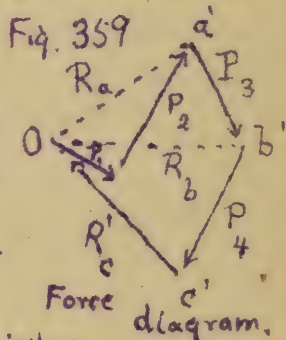 Fig. 359
a'
Ra
P3
P2
O
b'
Rb
P4
R'c
c'
Force
diagram.